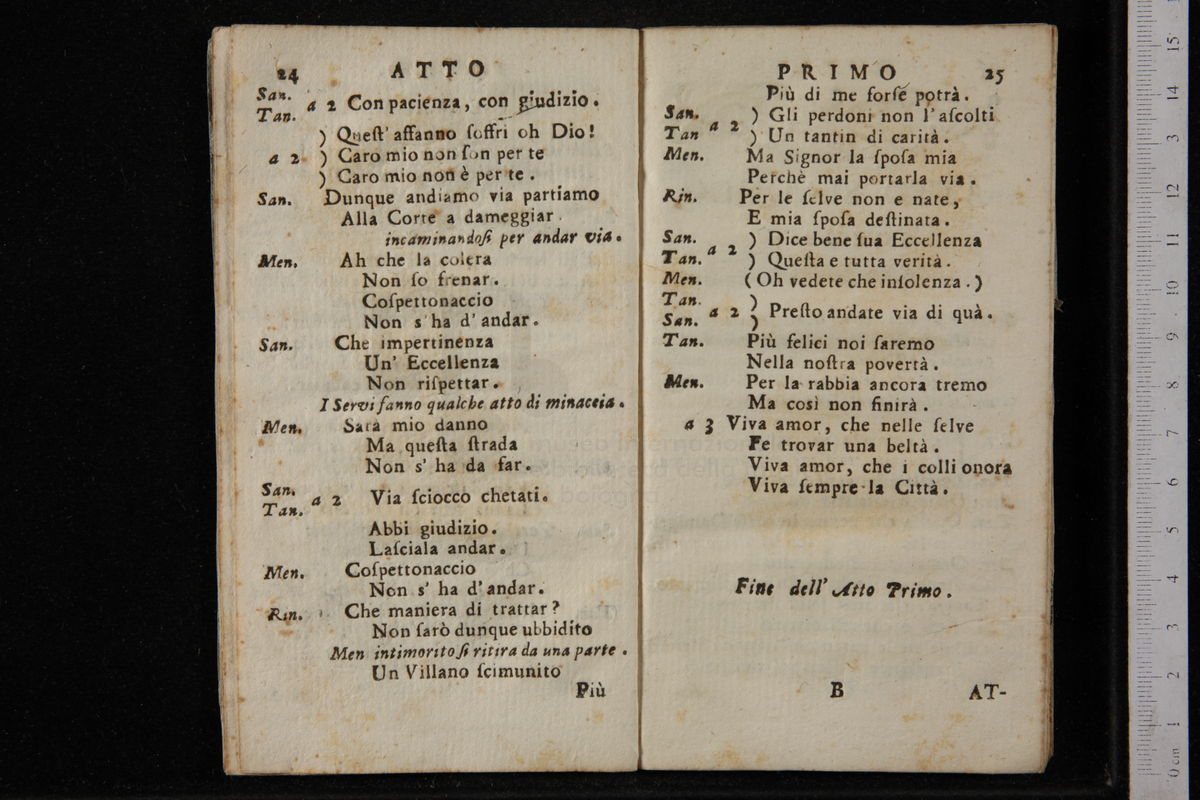 24 ATTO
San.
Tan. a 2 Con pacienza, con giudizio.
) Queſt' affanno ſoffri oh Dio!
a 2 ) Caro mio non ſon per te
) Caro mio non è per te.
San. Dunque andiamo via partiamo
Alla Corte a dameggiar.
incaminandoſi per andar via.
Men. Ah che la colera
Non ſo frenar.
Coſpettonaccio
Non s' ha d' andar.
San. Che impertinenza
Un' Eccellenza
Non riſpettar.
I Servi fanno qualche atto di minaccia.
Men. Sarà mio danno
Ma queſta ſtrada
Non s' ha da far.
San.
Tan. a 2 Via ſciocco chetati.
Abbi giudizio.
Laſciala andar.
Men. Coſpettonaccio
Non s' ha d' andar.
Rin. Che maniera di trattar?
Non ſarò dunque ubbidito
Men intimorito ſi ritira da una parte.
Un Villano ſcimunito
Più
PRIMO 25
Più di me forſe potrà.
San. ) Gli perdoni non l' aſcolti
Tan a 2 ) Un tantin di carità.
Men. Ma Signor la ſpoſa mia
Perchè mai portarla via.
Rin. Per le ſelve non e nate,
E mia ſpoſa deſtinata.
San. ) Dice bene ſua Eccellenza
Tan. a 2 ) Queſta e tutta verità.
Men. (Oh vedete che inſolenza.)
Tan. )
San. a 2 ) Preſto andate via di quà.
Tan. Più felici noi ſaremo
Nella noſtra povertà.
Men. Per la rabbia ancora tremo
Ma così non finirà.
a 3 Viva amor, che nelle ſelve
Fe trovar una beltà.
Viva amor, che i colli onora
Viva ſempre la Città.
Fine dell' Atto Primo.
B AT-
museo internazionale
bologna
0 cm 1 2 3 4 5 6 7 8 9 10 11 12 13 14 15